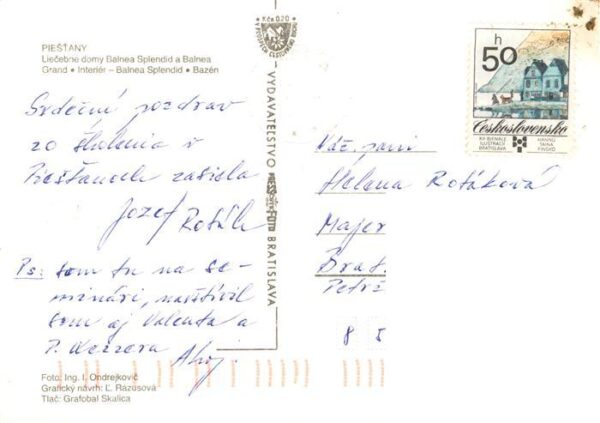 PIEŠŤANY
Liečebné domy Balnea Splendid a Balnea
Grand • Interiér – Balnea Splendid • Bazén
Srdečný pozdrav
zo školenia v
Piešťanoch zasiela
Jozef Roták
Ps: som tu na se-
minári, navštívil
som aj Valenta a
P.
Ahoj.
Foto: Ing. I. Ondrejkovič
Grafický návrh: Ľ. Rázusová
Tlač: Grafobal Skalica
Kčs 0,20
VYDAVATEĽSTVO
BRATISLAVA
h
50
Československo
XII BIENALE
ILUSTRÁCIÍ
BRATISLAVA
HANNU
TAINA
FINSKO
Váž. pani
Helena Rotáková
Majer
Brat.
Petrž
8 5